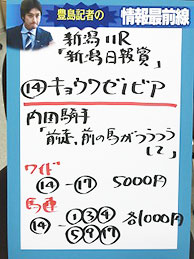 豊島記者の
情報最前線
新潟11R
「新潟日報賞」
⑭キョウワゼノビア
内田騎手
「前走、前の馬がつうつう
して」
ワイド
⑭-⑰ 5000円
馬連
⑭-①③④
⑤⑨⑰ 各1000円